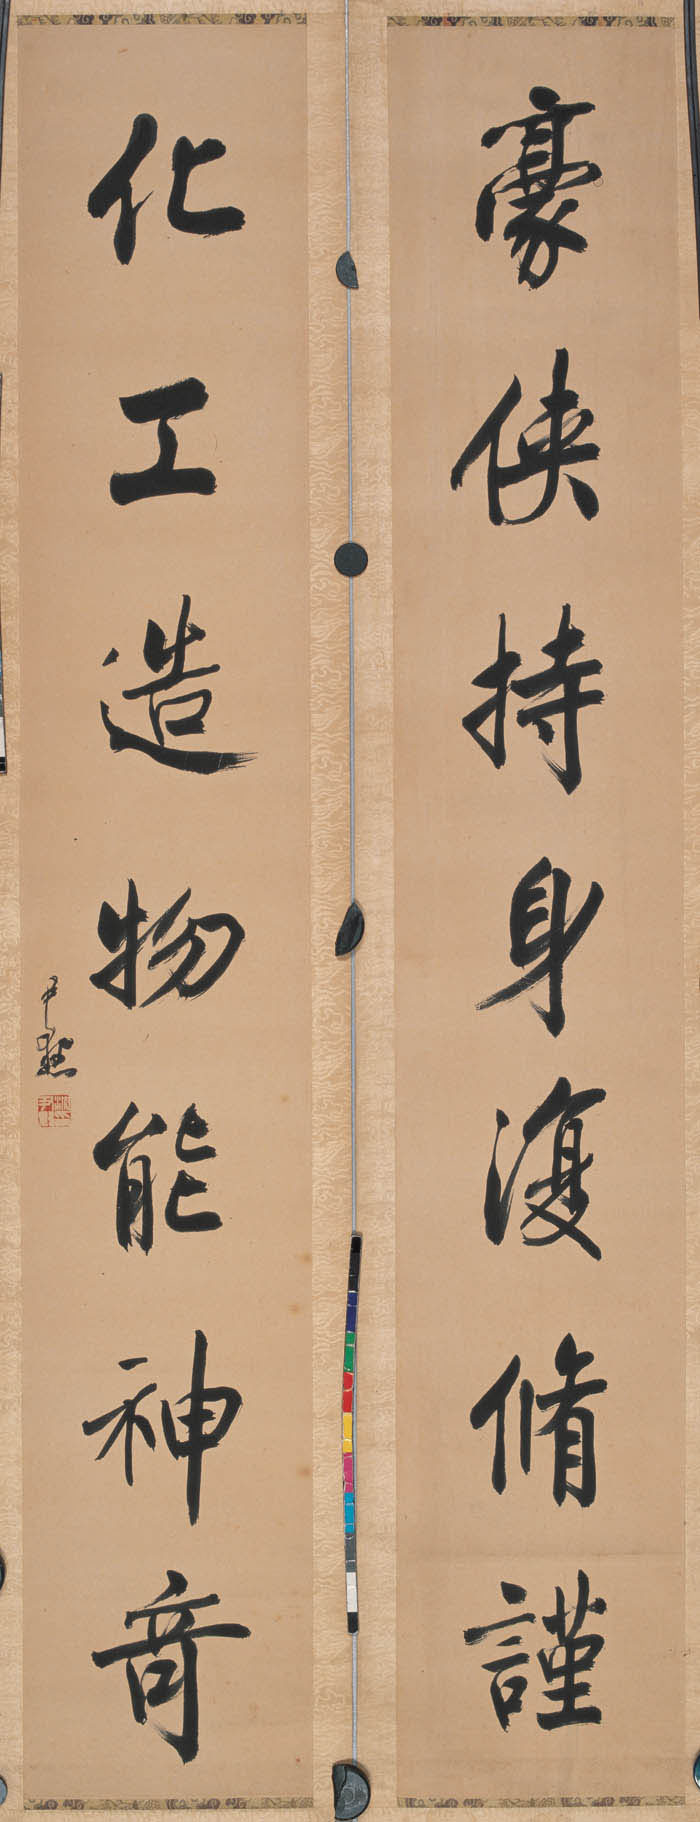 豪俠持身復脩謹
化工造物能神竒
尹默